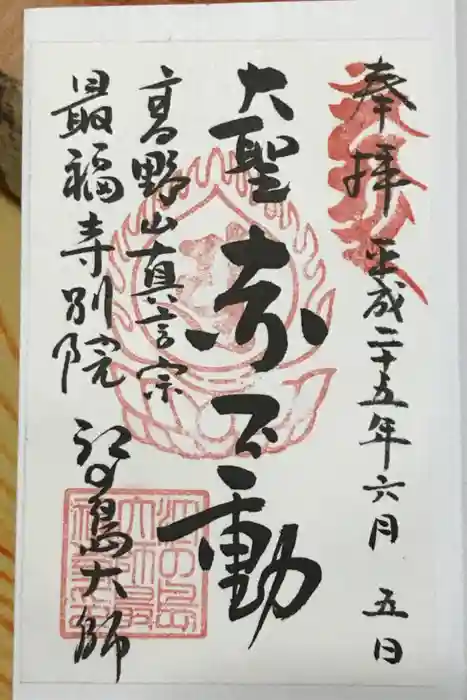 奉拝 平成二十五年六月 五日
大聖赤不動
高野山真言宗
最福寺別院 江の島大師